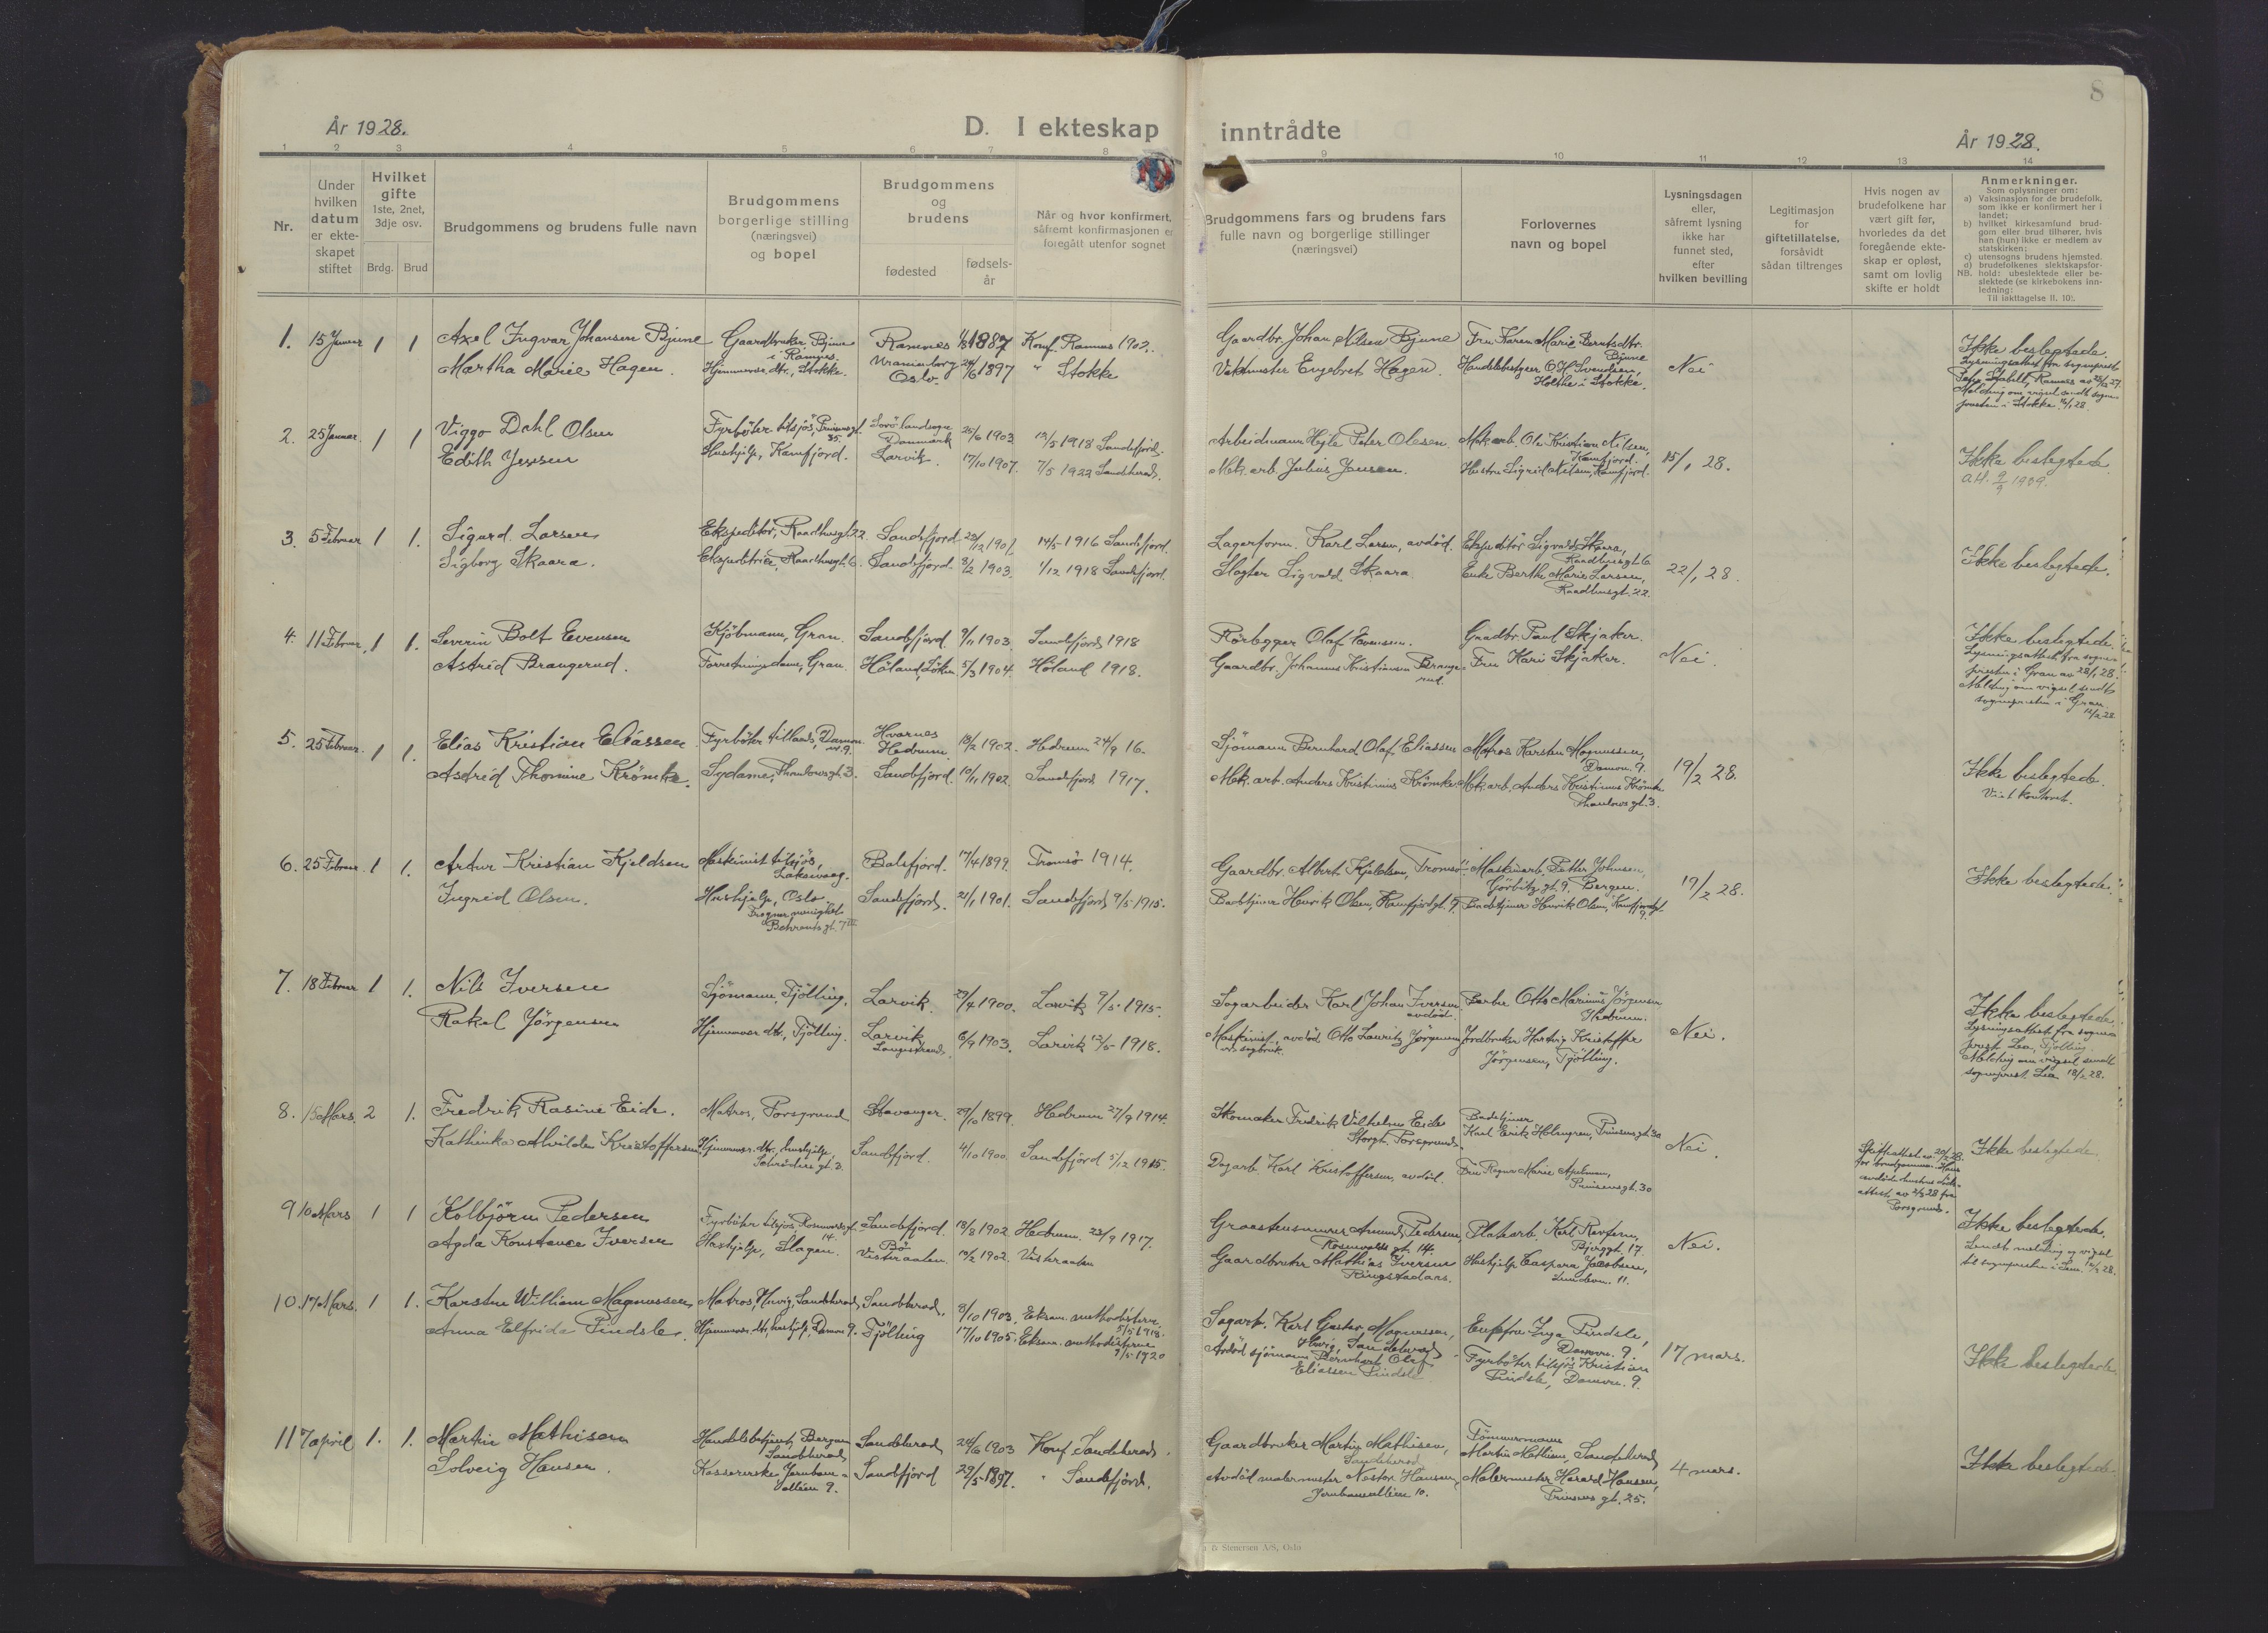 8
År 1928.
D. I ekteskap inntrådte
År 1928.
1 2 3 4 5 6 7 8 9 10 11 12 13 14
Nr.
Under hvilken datum er ekteskapet stiftet
Hvilket gifte 1ste, 2net, 3dje osv.
Brdg. Brud
Brudgommens og brudens fulle navn
Brudgommens borgerlige stilling (næringsvei) og bopel
Brudgommens og brudens
fødested
fødsels-år
Når og hvor konfirmert, såfremt konfirmasjonen er foregått utenfor sognet
Brudgommens fars og brudens fars fulle navn og borgerlige stillinger (næringsvei)
Forlovernes navn og bopel
Lysningsdagen eller, såfremt lysning ikke har funnet sted, efter hvilken bevilling
Legitimasjon for giftetillatelse, forsåvidt sådan tiltrenges
Hvis nogen av brudefolkene har vært gift før, hvorledes da det foregående ekteskap er opløst, samt om lovlig skifte er holdt
Anmerkninger.
Som oplysninger om:
a) Vaksinasjon for de brudefolk, som ikke er konfirmert her i landet;
b) hvilket kirkesamfund brudgom eller brud tilhører, hvis han (hun) ikke er medlem av statskirken;
c) utensogns brudens hjemsted.
d) brudefolkenes slektskapsforhold: ubeslektede eller beslektede (se kirkebokens innledning:
NB. Til iakttagelse II. 10).
1. 15 Januar 1 1 Axel Ingvar Johansen Bjune Gaardbruker Bjune i Ramnes. Ramnes 1887 Konf. Ramnes 1902. Gaardbr. Johan Nilsen Bjune Fru Karen Marie Berntsdtr. Bjune Nei Ikke beslegtede.
Martha Marie Hagen. Hjemmevær. dtr., Stokke. Uranienborg Oslo. 24/6 1897 " Stokke Vaktmester Engebret Hagen. Handelsbestyrer O. H. Svendsen, Holthe i Stokke.
Lysningsattest fra sogneprest Stabell, Ramnes av
Melding om vigsel sendt sognepresten i Stokke 16/1 28.
2. 25 Januar 1 1 Viggo Dahl Olsen Fyrbøter tilsjøs, Prinsensgt. 35. Sorö landsogn Danmark 25/6 1903 12/5 1918 Sandefjord. Arbeidsmann Hejle Peter Olesen. Mek. arb. Ole Kristian Nilsen, Kamfjord. 15/1 28. Ikke beslegtede
Edith Jenssen Hushjelp, Kamfjord. Larvik. 17/10 1907. 7/5 1922 Sandeherad. Mek. arb. Julius Jansen. Hustru Sigrid Nilsen, Kamfjord. 1939.
3. 5 Februar 1 1. Sigurd Larsen Ekspeditör, Raadhusgt. 22. Sandefjord. 23/12 1901. 14/5 1916 Sandefjord. Lagerform. Karl Larsen, avdöd. Ekspeditör Sigvald Skaara, Raadhusgt. 6 22/1 28. Ikke beslegtede.
Sigborg Skaara. Ekspeditrice, Raadhusgt. 6. Sandefjord. 3/2 1903. 1/12 1918 Sandefjord. Slagter Sigvald Skaara. Enke Berthe Marie Larsen, Raadhusgt. 22.
4. 11 Februar 1 1. Severin Bolt Evensen Kjöbmann, Gran. Sandefjord 9/11 1903. Sandefjord 1918 Rörlegger Olaf Evensen. Gaardbr. Paul Skjaker. Nei. Ikke beslegtede.
Astrid Brangerud. Forretningsdame, Gran. Höland, Löken. 5/3 1904. Höland 1918. Gaardbr. Johannes Kristiansen Brangerud. Fru Kari Skjaker.
Lysningsattest fra sognepresten i Gran av 28/1 28.
Melding om vigsel sendt sognepresten i Gran.
5. 25 Februar. 1 1. Elias Kristian Eliassen Fyrbøter tillands, Damvn. nr. 9. Hvarnes Hedrum 13/2 1902. Hedrum 24/9 16. Sjömann Bernhard Olaf Eliassen Matros Karsten Magnussen, Damvn. 9. 19/2 28. Ikke beslegtede.
Astrid Thomine Krömke. Sydame, Thaulowsgt. 3. Sandefjord. 10/11 1902. Sandefjord 1917. Mek. arb. Anders Kristinius Krömke. Mek. arb. Anders Kristinius Krömke Thaulowsgt. 3.
Viet kontoret.
6. 25 Februar 1 1. Artur Kristian Kjeldsen Maskinist tilsjös, Laksevaag. Balsfjord. 17/4 1899. Tromsö 1914. Gaardbr. Albert Kjeldsen, Tromsö. Maskinarb. Petter Johnsen, Görbitz gt. 9, Bergen. 19/2 28. Ikke beslegtede.
Ingrid Olsen. Hushjelp, Oslo. Frogner menighet Behrensgt. 7 III. Sandefjord. 21/1 1901. Sandefjord 9/5 1915. Badetjener Henrik Olsen, Kamfjordgt. 9. Badetjener Henrik Olsen, Kamfjordgt. 9.
7. 18 Februar 1 1. Nils Iversen Sjömann, Tjölling. Larvik. 29/4 1900. Larvik 9/5 1915. Sagarbeider Karl Johan Iversen avdöd. Barber Otto Marinius Jörgensen Hedrum. Nei. Ikke beslegtede
Rakel Jörgensen Hjemmevær. dtr., Tjölling. Larvik Langestrand. 6/9 1903. Larvik 12/5 1918. Maskinist, avdöd Otto Lauritz Jørgensen ved sagbruk. Jordbruker Hartvig Kristoffer Jörgensen, Tjölling.
Lysningsattest fra sogneprest Lea, Tjölling.
Melding om vigsel sendt sogneprest Lea 18/2 28.
8. 15 Mars. 2 1. Fredrik Rasine Eide. Matros, Porsgrund Stavanger. 29/10 1899. Hedrum 27/9 1914. Skomaker Fredrik Vilhelm Eide Storgt. Porsgrund. Badetjener Karl Erik Holmgren, Prinsensgt. 30 Nei. Ikke beslegtede.
Kathinka Alvilde Kristoffersen Hjemmevær. dtr., hushjelp, Schröders gt. 3. Sandefjord. 4/10 1900. Sandefjord 5/12 1915. Dagarb. Karl Kristoffersen, avdöd. Fru Ragna Marie Apelman, Prinsensgt. 30
Skifteattest av 29/2 28. for brudgommen. Hans avdöde hustrus dödsattest av 2/3 28 fra Porsgrund.
9 10 Mars 1 1 Kolbjörn Pedersen Fyrbøter tilsjös, Rosenvoldsgt. 14. Sandefjord. 18/8 1902. Hedrum. 23/9 1917. Graastensmurer Amund Pedersen, Rosenvolds gt. 14. Platearb. Karl Revheim, Bjerggt. 17. Nei. Ikke beslegtede.
Agda Konstance Iversen Hushjelp, Slagen. Bö Vesteraalen. 10/2 1902. Vesteraalen Gaardbruker Mathias Iversen Ringstadaas. Hushjelp Caspara Jacobsen, Lundevn. 11.
Sendt melding om vigsel til sognepresten i Sem. 12/3 28.
10. 17 Mars. 1 1. Karsten William Magnussen Matros, Hvvig, Sandeherad Sandeherad. 8/10 1903. Eksam. methodistkirke 5/5 1918. Sagarb. Karl Gustav Magnussen, Sandeherad Enkefru Inga Pindsle, Damvn. 9. 17 mars. Ikke beslegtede
Anna Elfrida Pindsle. Hjemmevær. dtr., hushjelp, Damvn 9. Tjölling 17/10 1905. Eksam. methodistkirke 9/5 1920 Avdöd sjömann Bernhart Olaf Eliassen Pindsle. Fyrbøter tilsjös Kristian Pindsle, Damvn. 9.
11 7 april 1. 1. Martin Mathisen Handelsbetjent, Bergan Sandeherad Sandeherad 24/6 1903 Konf. Sandeherad. Gaardbruker Martin Mathisen, Sandeherad Tömmermann Martin Mathisen, Sandeherad 4 mars. Ikke beslegtede
Solveig Hansen. Kassererske Jernbanealléen 9. Sandefjord 29/5 1897. " Sandefjord. Avdöd malermester Nestor Hansen, Jernbanealléen 10. Malermester Harald Hansen, Prinsens gt. 25.
& Stenersen A/S, Oslo